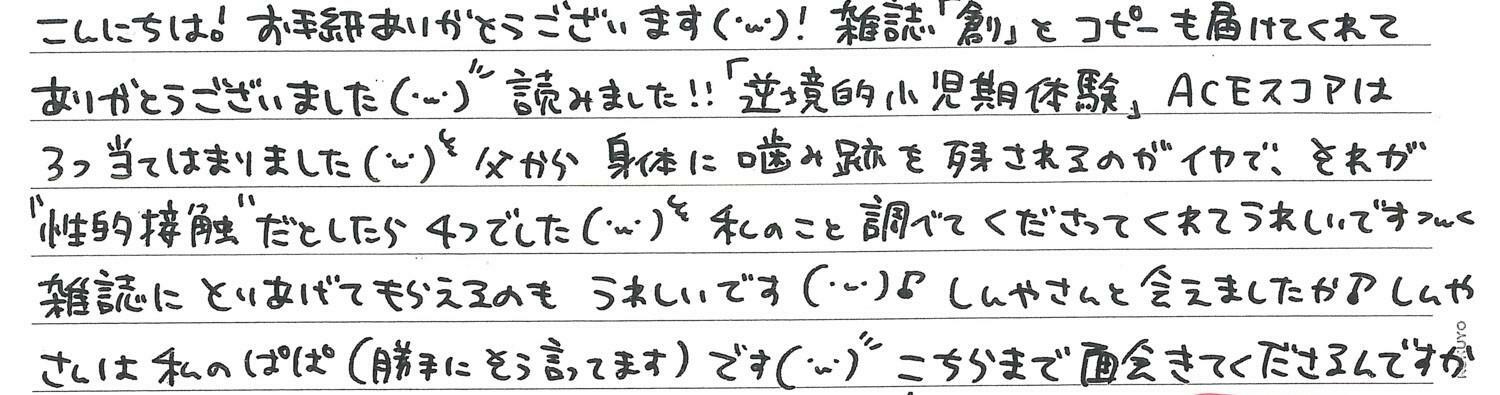 こんにちは! お手紙ありがとうございます(･ω･)! 雑誌「創」と コピーも届けてくれて
ありがとうございました(･ω･)" 読みました!!「逆境的小児期体験」ACEスコアは
3つ当てはまりました(･ω･) 父から 身体に 噛み跡を 残されるのがイヤで、それが
"性的接触"だとしたら 4つでした(･ω･) 私のこと調べてくださってくれてうれしいです
雑誌に とりあげてもらえるのも うれしいです(･ω･)♪ しんやさんと会えましたか♪しんや
さんは 私のぱぱ(勝手にそう言ってます)です(･ω･)" こちらまで面会きてくださるんですか